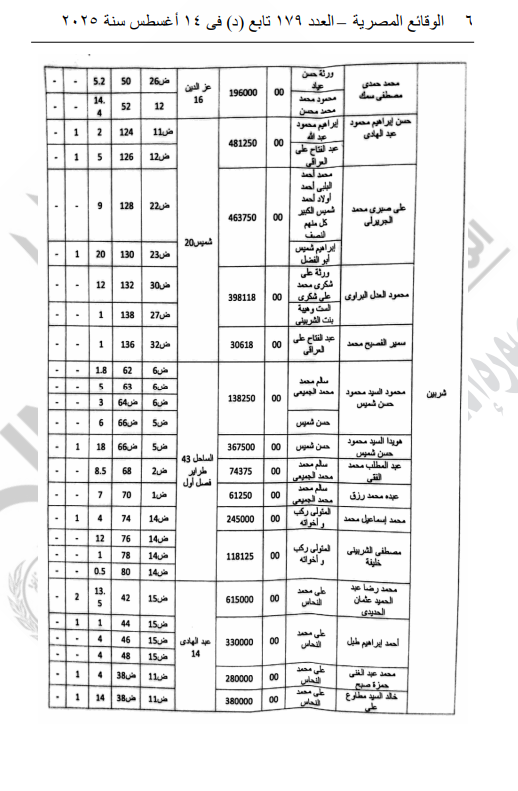 ٦ الوقائع المصرية – العدد ١٧٩ تابع (د) فى ١٤ أغسطس سنة ٢٠٢٥
شربين
محمد حمدى مصطفى سمك | ورثة حسن عياد | 00 | 196000 | عز الدين 16 | ض26 | 50 | 5.2 | - | -
محمود محمد محمد محسن | 12 | 52 | 14.4 | - | -
حسن إبراهيم محمود عبد الهادى | إبراهيم محمود عبد الله | 00 | 481250 | شميس20 | ض11 | 124 | 2 | 1 | -
عبد الفتاح على العراقى | ض12 | 126 | 5 | 1 | -
على صبرى محمد الجريرلى | محمد أحمد البلبى أحمد أولاد أحمد شميس الكبير كل منهم النصف | 00 | 463750 | ض22 | 128 | 9 | - | -
إبراهيم شميس أبو الفضل | ض23 | 130 | 20 | 1 | -
محمود العدل البراوى | ورثة على شكرى محمد على شكرى | 00 | 398118 | ض30 | 132 | 12 | - | -
الست وهيبة بنت الشربينى | ض27 | 138 | 1 | - | -
سمير الفصيح محمد | عبد الفتاح على العراقى | 00 | 30618 | ض32 | 136 | 1 | - | -
محمود السيد محمود حسن شميس | سالم محمد محمد الجميعى | 00 | 138250 | الساحل 43 طراير فصل أول | ض6 | 62 | 1.8 | - | -
ض6 | 63 | 5 | - | -
ض6 | ض64 | 3 | - | -
حسن شميس | ض5 | ض66 | 6 | - | -
هويدا السيد محمود حسن شميس | حسن شميس | 00 | 367500 | ض5 | ض66 | 18 | 1 | -
عبد المطلب محمد الفقى | سالم محمد محمد الجميعى | 00 | 74375 | ض2 | 68 | 8.5 | - | -
عبده محمد رزق | سالم محمد محمد الجميعى | 00 | 61250 | ض1 | 70 | 7 | - | -
محمد إسماعيل محمد | المتولى ركب و أخواته | 00 | 245000 | ض14 | 74 | 4 | 1 | -
مصطفى الشربينى خليفة | المتولى ركب و أخواته | 00 | 118125 | ض14 | 76 | 12 | - | -
ض14 | 78 | 1 | - | -
ض14 | 80 | 0.5 | - | -
محمد رضا عبد الحميد عثمان الحديدى | على محمد النحاس | 00 | 615000 | عبد الهادى 14 | ض15 | 42 | 13.5 | 2 | -
أحمد إبراهيم طبل | على محمد النحاس | 00 | 330000 | ض15 | 44 | 1 | 1 | -
ض15 | 46 | 4 | - | -
ض15 | 48 | 4 | - | -
محمد عبد الغنى حمزة صبح | على محمد النحاس | 00 | 280000 | ض11 | ض38 | 4 | 1 | -
خالد السيد مطاوع على | على محمد النحاس | 00 | 380000 | ض11 | ض38 | 14 | 1 | -